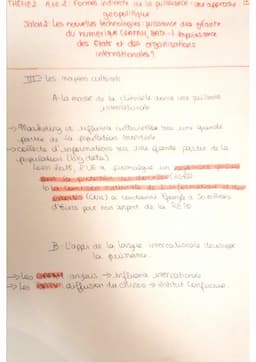 THÈME 2 Axe 2: Formes indirecte de la puissance: une approche
géopolitique
Jalon 2: Les nouvelles technologies: puissance des géants
du numérique (GAFAM, BATX...) impuissance
des Etats et des organisations
internationales?
III- Les moyens culturels
A- La masse de la clientèle donne une puissance
internationale
→ Marketing → influence intellectuelle sur une grande
partie de la population mondiale
→ collecte d'informations sur une grande partie de la
population (big data)
la protection des données (RGPD)
la commission nationale de l'informatique et des
libertés (CNIL) a condamné Google à 50 millions
d'Euros pour non respect de la RGPD
B- L'appui de la langue internationale développe
la puissance
→ Les GAFAM anglais → influence internationale
→ Les BATX diffusion du chinois → institut Confucius.